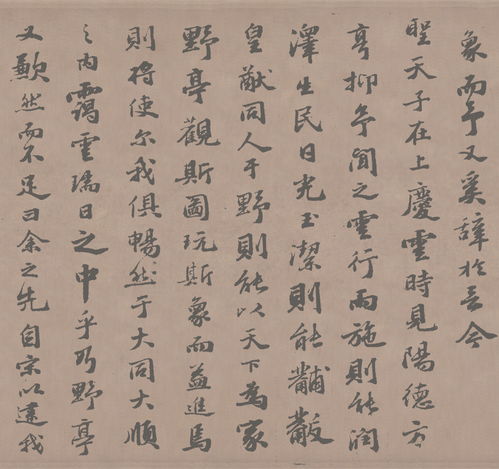 象而予又奚辭於言今
聖天子在上慶雲時見陽德方
亨抑予聞之雲行雨施則能潤
澤生民日光玉潔則能黼黻
皇猷同人于野則能以天下為家
野亭觀斯圖玩斯象而益進焉
則將使尔我俱暢然于大同大順
之内靄雲瑞日之中乎乃野亭
又歉然而不足曰余之先自宗以逮我